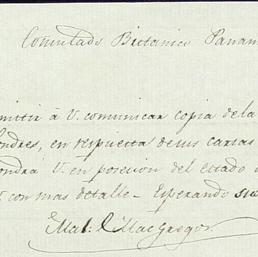 Consulado Britanico Panam
mitir á V. comunicar copia de la
ondres, en respuesta de sus cartas
ondrá V. en posecion del estado
V. con mas detalle - Esperando su
Mac Gregor